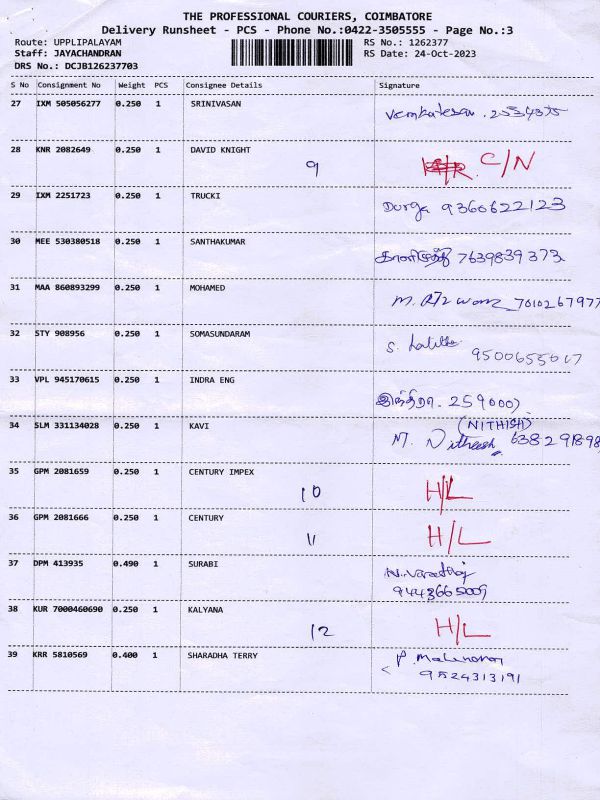 THE PROFESSIONAL COURIERS, COIMBATORE
Delivery Runsheet - PCS - Phone No.:0422-3505555 - Page No.:3
Route: UPPLIPALAYAM
RS No.: 1262377
Staff: JAYACHANDRAN
RS Date: 24-Oct-2023
DRS No.: DCJB126237703
S No Consignment No Weight PCS Consignee Details Signature
27 IXM 505056277 0.250 1 SRINIVASAN Venkatesan. 2534375
28 KNR 2082649 0.250 1 DAVID KNIGHT 9 C/N
29 IXM 2251723 0.250 1 TRUCKI Durga 9360622123
30 MEE 530380518 0.250 1 SANTHAKUMAR 7639839373
31 MAA 860893299 0.250 1 MOHAMED M. 7010267977
32 STY 908956 0.250 1 SOMASUNDARAM S. Lalitha 9500655017
33 VPL 945170615 0.250 1 INDRA ENG இந்திரா. 259000
(NITHISH)
34 SLM 331134028 0.250 1 KAVI M. Nitheesh 638291898
35 GPM 2081659 0.250 1 CENTURY IMPEX 10 H/L
36 GPM 2081666 0.250 1 CENTURY 11 H/L
37 DPM 413935 0.490 1 SURABI
9443665009
38 KUR 7000460690 0.250 1 KALYANA 12 H/L
39 KRR 5810569 0.400 1 SHARADHA TERRY P.
9524313191